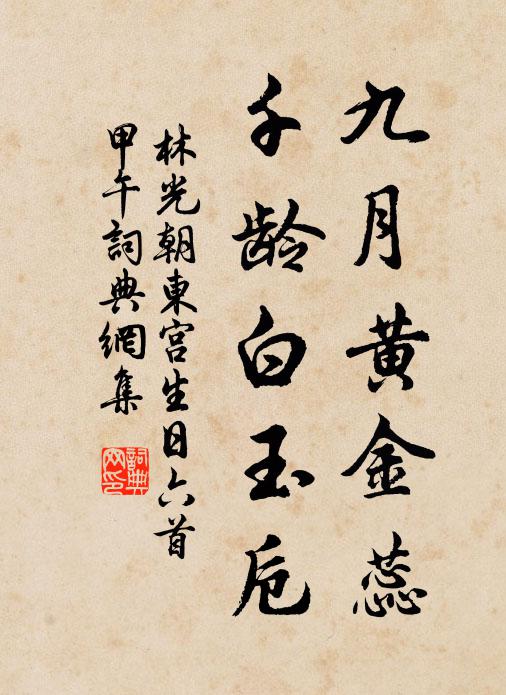 九月黄金蕊
千龄白玉卮
林光朝東宫生日六首
甲午詞典網集
詞典网印